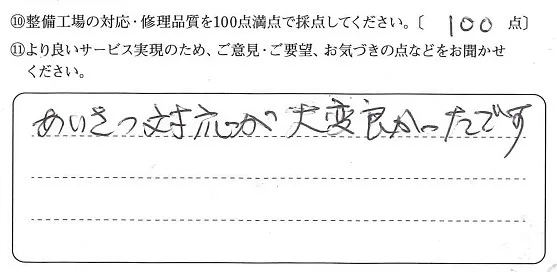 ⑩整備工場の対応・修理品質を100点満点で採点してください。〔 100 点〕
⑪より良いサービス実現のため、ご意見・ご要望、お気づきの点などをお聞かせ
ください。
あいさつ対応が大変良かったです